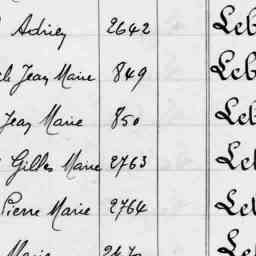 Adrien 2642 Leb
Jean Marie 849 Leb
Jean Marie 850 Leb
Gilles Marie 2763 Le
Pierre Marie 2764 Le
Marie Le